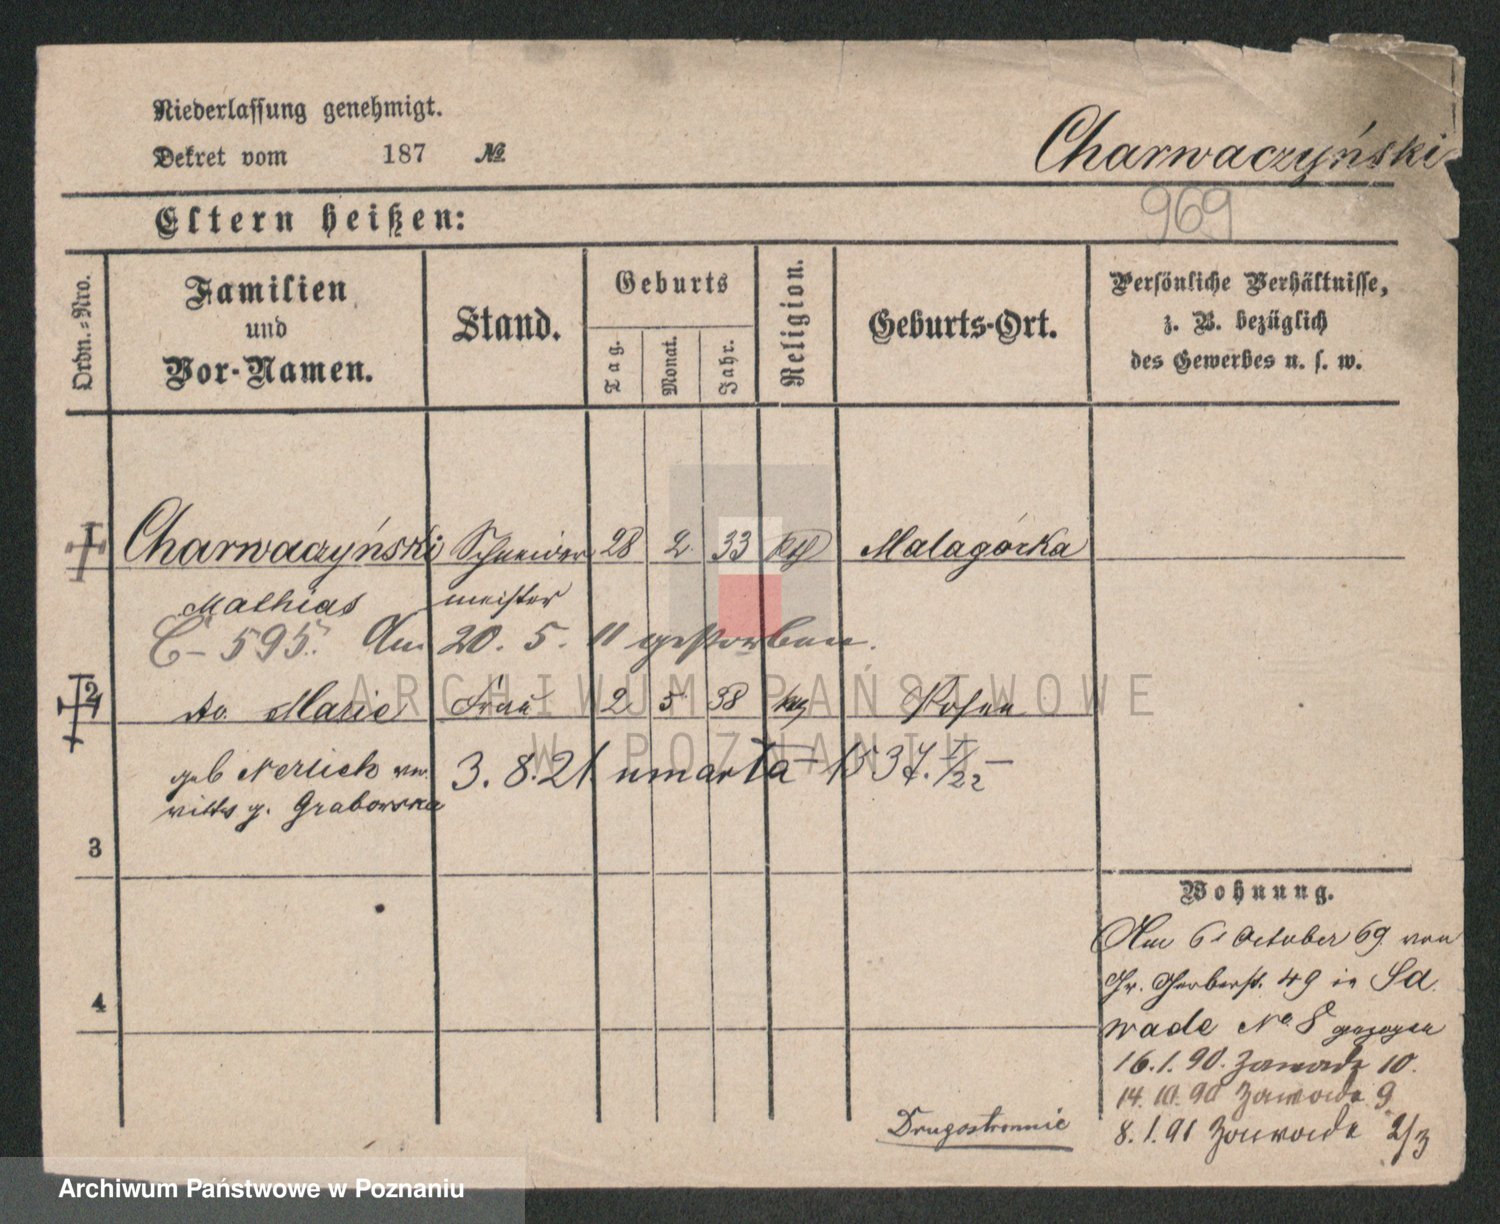 Niederlassung genehmigt.
Dekret vom 187 №
Charwaczyński
969
Eltern heißen:
Ordn.=Nro.
Familien
und
Vor-Namen.
Stand.
Geburts
Tag.
Monat.
Jahr.
Religion.
Geburts-Ort.
Persönliche Verhältnisse,
z. B. bezüglich
des Gewerbes u. s. w.
1 Charwaczyński Schneider 28 2 33 kth Malagórka
Mathias meister
C- 595. Am 20. 5. 11 gestorben.
2 do. Marie Frau 2 5 38 Posen
geb Nerlich
g. Grabowska
3. 8. 21 umarła 1537.
3
4
Wohnung.
Am 6 October 69 von
Gr. Gerberst. 49 in
wade No 8 gezogen
16.1.90. Zawade 10.
14.10.90 Zawade 9
8.1.91 Zawade 2/3
Drugostronnie
ARCHIWUM PAŃSTWOWE
W POZNANIU
Archiwum Państwowe w Poznaniu